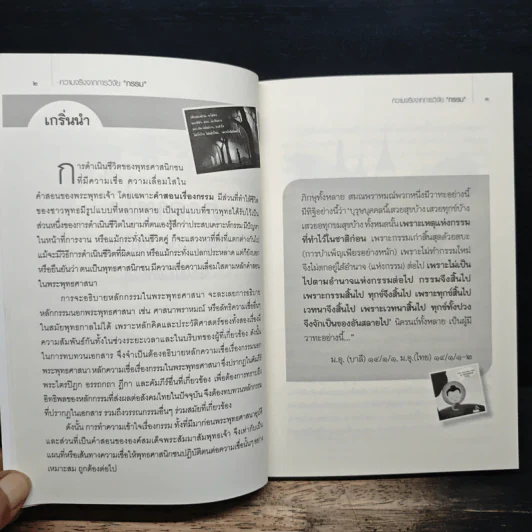 ๒ ความจริงจากการวิจัย "กรรม"
เกริ่นนำ
การดำเนินชีวิตของพุทธศาสนิกชน
ที่มีความเชื่อ ความเลื่อมใสใน
คำสอนของพระพุทธเจ้า โดยเฉพาะคำสอนเรื่องกรรม มีส่วนที่ทำให้ชีวิต
ของชาวพุทธมีรูปแบบที่หลากหลาย เป็นรูปแบบที่ชาวพุทธได้รับไว้เป็น
ส่วนหนึ่งของการดำเนินชีวิตในยามที่ตนเองรู้สึกว่าประสบเคราะห์กรรม มีปัญหา
ในหน้าที่การงาน หรือแม้กระทั่งในชีวิตคู่ ก็จะแสวงหาที่พึ่งที่แตกต่างกันไป
แม้จะมีวิธีการดำเนินชีวิตที่ผิดแผก หรือแม้กระทั่งแปลกประหลาด แต่ก็ยังยอมรับ
หรือยืนยันว่า ตนเป็นพุทธศาสนิกชน มีความเชื่อความเลื่อมใสตามหลักคำสอน
ในพระพุทธศาสนา
การจะอธิบายหลักกรรมในพระพุทธศาสนา จะละเลยการอธิบาย
หลักกรรมนอกพระพุทธศาสนา เช่น ศาสนาพราหมณ์ หรือลัทธิความเชื่ออื่นๆ
ในสมัยพุทธกาลไม่ได้ เพราะหลักคิดและประวัติศาสตร์ของทั้งสองเรื่องมี
ความสัมพันธ์กันทั้งในช่วงระยะเวลาและในบริบทของผู้ที่เกี่ยวข้อง ดังนั้น
ในการทบทวนเอกสาร จึงจำเป็นต้องอธิบายหลักความเชื่อเรื่องกรรมนอก
พระพุทธศาสนา หลักความเชื่อเรื่องกรรมในพระพุทธศาสนา ซึ่งปรากฏในคัมภีร์
พระไตรปิฎก อรรถกถา ฎีกา และคัมภีร์อื่นที่เกี่ยวข้อง เพื่อต้องการทราบถึง
อิทธิพลของหลักกรรมที่ส่งผลต่อสังคมไทยในปัจจุบัน จึงต้องทบทวนหลักกรรม
ที่ปรากฏในเอกสาร รวมถึงวรรณกรรมอื่นๆ ร่วมสมัยที่เกี่ยวข้อง
ดังนั้น การทำความเข้าใจเรื่องกรรม ทั้งที่มีมาก่อนพระพุทธศาสนาอุบัติ
และส่วนที่เป็นคำสอนขององค์สมเด็จพระสัมมาสัมพุทธเจ้า จึงเท่ากับเป็น
แผนที่หรือเส้นทางความเชื่อให้พุทธศาสนิกชนปฏิบัติตนต่อความเชื่อนั้นๆ อย่าง
เหมาะสม ถูกต้องต่อไป
ความจริงจากการวิจัย "กรรม" ๓
ภิกษุทั้งหลาย สมณพราหมณ์พวกหนึ่งมีวาทะอย่างนี้
มีทิฐิอย่างนี้ว่า 'บุรุษบุคคลนี้เสวยสุขบ้าง เสวยทุกข์บ้าง
เสวยอทุกขมสุขบ้าง ทั้งหมดนั้นเพราะเหตุแห่งกรรม
ที่ทำไว้ในชาติก่อน เพราะกรรมเก่าสิ้นสุดด้วยตบะ
(การบำเพ็ญเพียรอย่างหนัก) เพราะไม่ทำกรรมใหม่
จึงไม่ตกอยู่ใต้อำนาจ (แห่งกรรม) ต่อไป เพราะไม่เป็น
ไปตามอำนาจแห่งกรรมต่อไป กรรมจึงสิ้นไป
เพราะกรรมสิ้นไป ทุกข์จึงสิ้นไป เพราะทุกข์สิ้นไป
เวทนาจึงสิ้นไป เพราะเวทนาสิ้นไป ทุกข์ทั้งปวง
จึงจักเป็นของอันสลายไป' นิครนถ์ทั้งหลาย เป็นผู้มี
วาทะอย่างนี้..."
ม.อุ. (บาลี) ๑๔/๑/๑, ม.อุ.(ไทย) ๑๔/๑/๑-๒